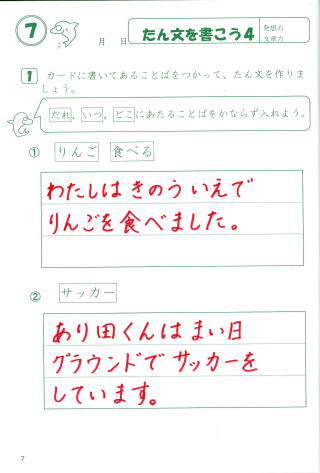 7
月 日
たん文を書こう4
発想力
文章力
1 カードに書いてあることばをつかって、たん文を作りま
しょう。
だれ、いつ、どこにあたることばをかならず入れよう。
① りんご 食べる
わたしは きのう いえで
りんごを 食べました。
② サッカー
あり田くんは まい日
グラウンドで サッカーを
しています。
7